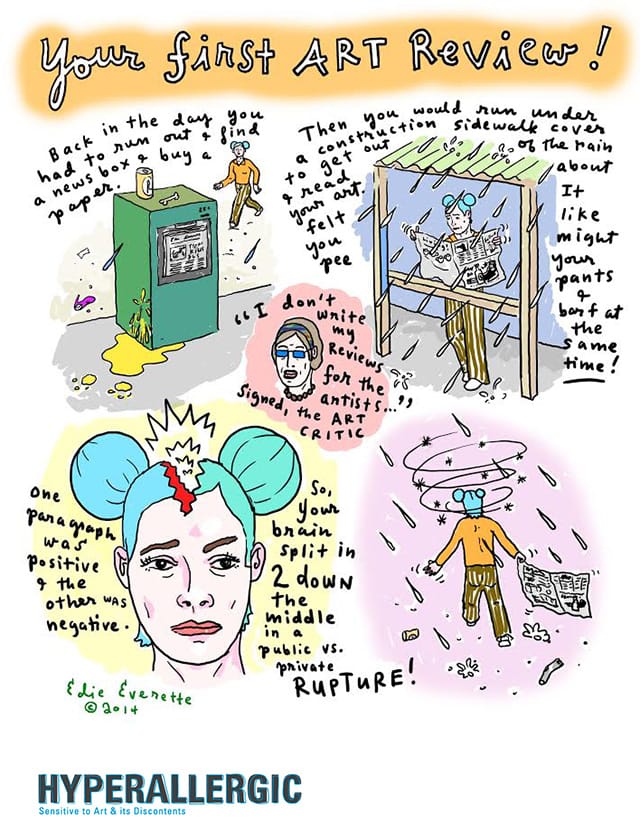 Your first ART Review!
Back in the day you
had to run out & find
a news box & buy a
paper.
Then you would run under
a construction sidewalk cover
to get out of the rain
& read about
your art. It
felt like
you might
pee your
pants
&
barf at
the
same
time!
"I don't
write
my
Reviews
for the
artists..."
Signed, the ART
CRITIC
One
paragraph
was
positive
& the
other was
negative.
So,
your
brain
split in
2 down
the
middle
in a
public vs.
private
RUPTURE!
Edie Everette
© 2014
HYPERALLERGIC
Sensitive to Art & its Discontents